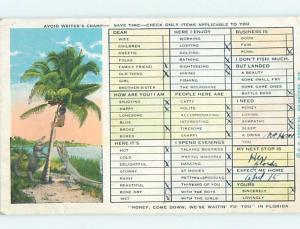 AVOID WRITER'S CRAMP — SAVE TIME — CHECK ONLY ITEMS APPLICABLE TO YOU
DEAR HERE I ENJOY BUSINESS IS
WIFE WORKING GOOD
CHILDREN LOAFING FAIR
SWEETIE GOLFING PUNK
FOLKS BATHING I DON'T FISH, MUCH,
FAMILY FRIEND SIGHTSEEING BUT LANDED
OLD THING HIKING A BEAUTY
GIRL FISHING SOME SMALL FRY
BROTHER-SISTER THE MOONSHINE SOME GAME ONES
HOW ARE YOU! I AM PEOPLE HERE ARE BATTLE BOSS
ENJOYING CATTY I NEED
HAPPY POLITE MONEY
LONESOME ACCOMMODATING LOVING
BLUE INTERESTING SYMPATHY
BROKE SOCIABLE SLEEP
BORED SNOBBISH A DRINK
HERE IT'S I SPEND EVENINGS
HOT TALKING BUSINESS
COLD MAKING WHOOPEE MY NEXT STOP IS
DELIGHTFUL DANCING
STORMY AT THE MOVIES EXPECT ME HOME
RAINY April 15
BEAUTIFUL THINKING OF YOU YOURS
BONE DRY WITH THE BOYS SINCERELY
WET WITH THE GIRLS LOVINGLY
"HONEY, COME DOWN, WE'SE WAITIN' TO YOU" IN FLORIDA